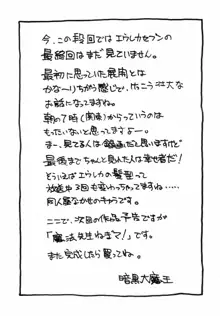 今、この段階ではエウレカセブンの
最終回はまだ見ていません。
最初に思っていた展開とは
かな〜りちがう感じで、けっこう壮大な
お話になってますね。
朝の7時(関東)からっていうのは
もったいないと思うですよー。
まー、見てる人は録画だと思いますけど
最後までちゃんと見れた人は幸せ者だ!
どういえばエウレカの髪型って
放送中3回も変わっちゃってますね…
同人屋なかせのキャラです。
ここで、次回の作品予告ですが
「魔法先生ねぎマ!」です。
また完成したら買ってね。
暗黒大魔王